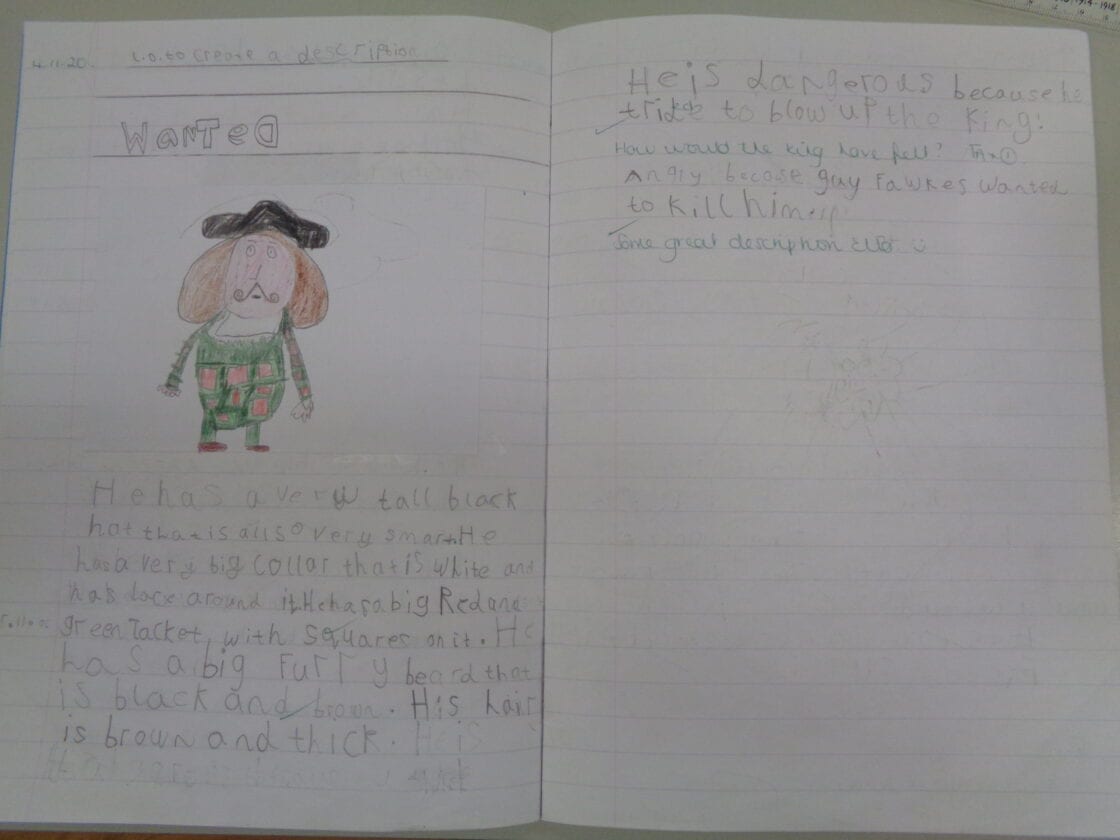 4.11.20. L.O. to create a description
WaNTeD
He has a very tall black
hat that is allso very smart. He
has a very big collar that is white and
has lace around it. He has a big Red and
green Jacket, with squares on it. He
has a big furry beard that
is black and brown. His hair
is brown and thick. He is
He is dangerous because he
to blow up the King!
How would the king have felt?
Angry because guy Fawkes wanted
to kill him.
Some great description
1914-1918